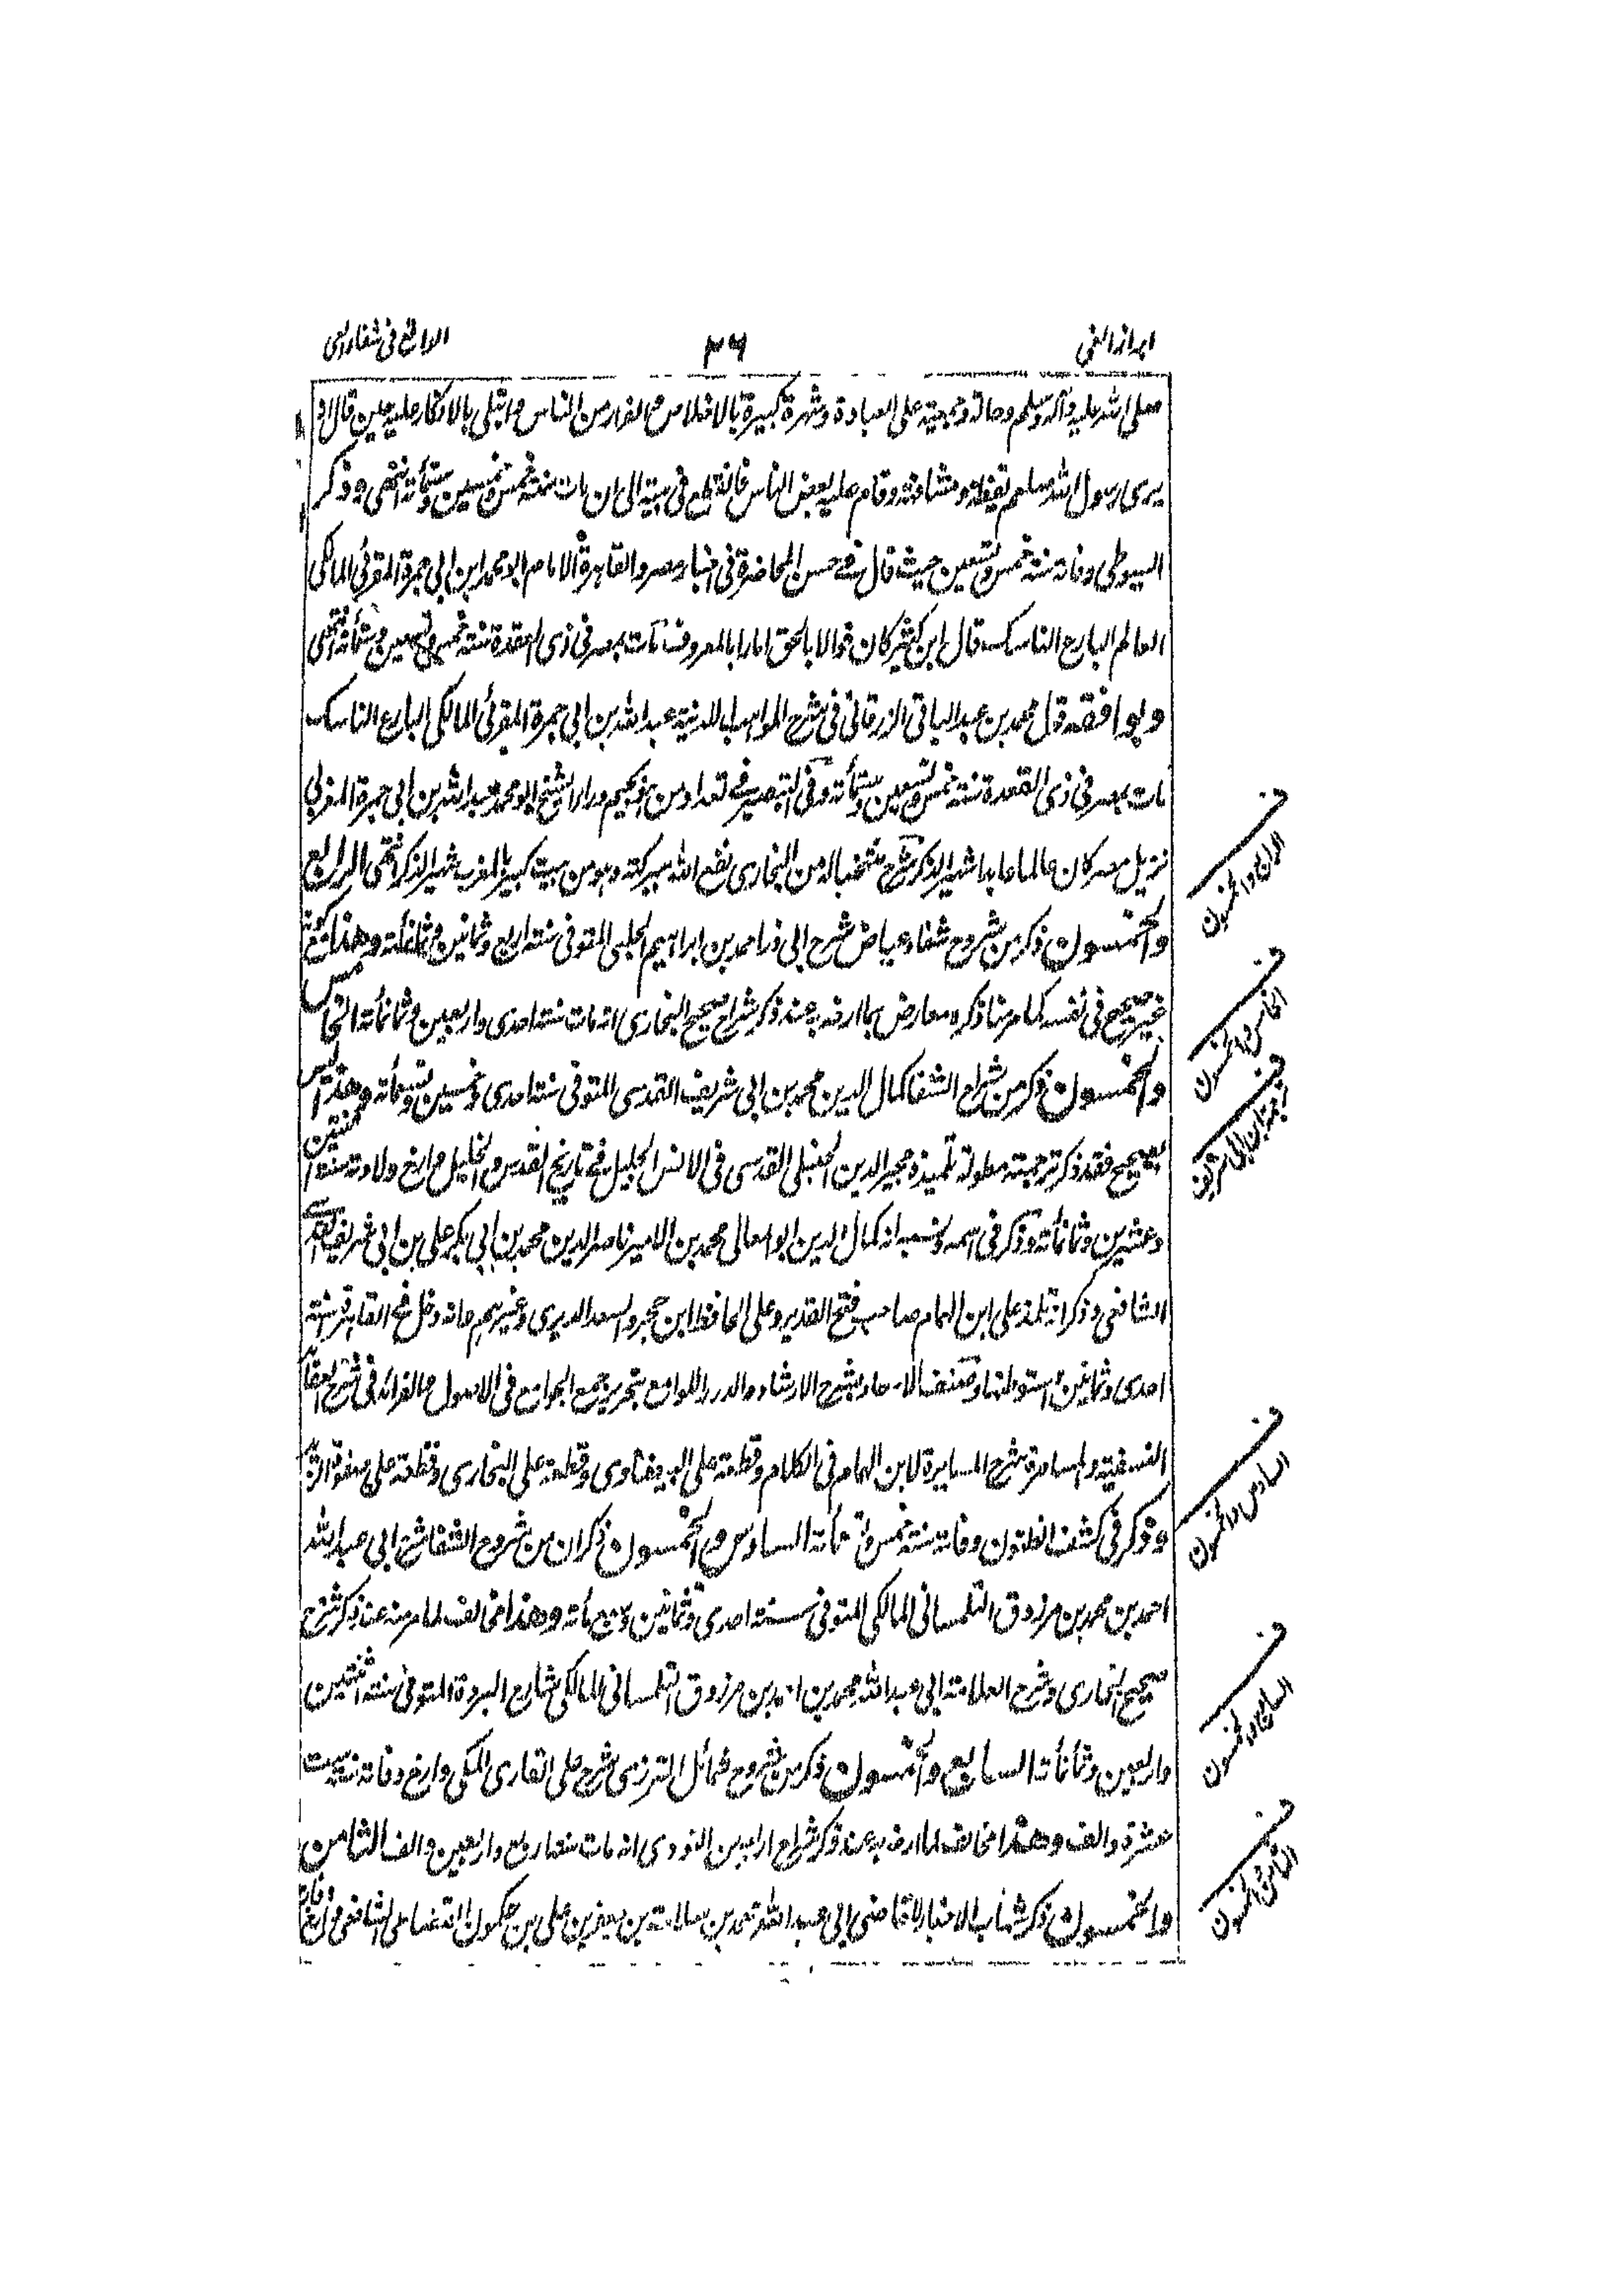 ابراز الغی
٣٦
الواقع فی شفاء العی
صلی اللہ علیہ وآلہ وسلم وحالة وجمعية علی العبادة وشهرة كبيرة بالاخلاص والفرار من الناس وابتلی بالانكار علیہ حین قال انہ
یری رسول اللہ صلعم یقظة ومشافهة وقام علیہ بعض الناس فانقطع فی بیتہ الی ان مات سنة خمس وخمسین وستمأتہ انتہی وذكر
السیوطی وفاتہ سنة خمس وتسعین حیث قال فی حسن المحاضرة فی اخبار مصر والقاهرة الامام ابو محمد ابن ابی جمرة المقرئ المالكی
العالم البارع الناسك قال ابن كثیر كان قوالا بالحق امارا بالمعروف مات بمصر فی ذی القعدة سنة خمس وتسعین وستمأتہ انتہی
ویوافقہ قول محمد بن عبد الباقی الزرقانی فی شرح المواهب اللدنیة عبد اللہ بن ابی جمرة المقرئ المالكی البارع الناسك
مات بمصر فی ذی القعدة سنة خمس وتسعین وستمأتہ وفی التبصیر فی تعداد من هو بجیم وراء الشیخ ابو محمد عبد اللہ بن ابی جمرة المغربی
نزیل مصر كان عالما عابدا شہیر الذكر شرح منتخبا لہ من البخاری نفع اللہ ببركتہ وهو من بیت كبیر بالمغرب شہیر الذكر انتہی الرابع
والخمسون ذكر من شروح شفاء عیاض شرح ابی ذر احمد بن ابراهیم الحلبی المتوفی سنة اربع وثمانین وثمانمأتہ وهذا مع كونہ
غیر صحیح فی نفسہ كما مر منا ذكرہ معارض بما ارخہ بہ عند ذكر شراح صحیح البخاری انہ مات سنة احدی واربعین وثمانمأتہ الخامس
والخمسون ذكر من شراح الشفا كمال الدین محمد بن ابی شریف القدسی المتوفی سنة احدی وخمسین وتسعمأتہ وهذا لیس
بصحیح فقد ذكر ترجمتہ مطولة تلمیذہ مجیر الدین الحنبلی القدسی فی الانس الجلیل فی تاریخ القدس والخلیل وارخ ولادتہ سنة اثنتین
وعشرین وثمانمأتہ وذكر فی اسمہ ونسبہ انہ كمال الدین ابو المعالی محمد بن الامیر ناصر الدین محمد بن ابی بكر علی بن ابی شریف القدسی
الشافعی وذكر انہ تلمذ علی ابن الهمام صاحب فتح القدیر وعلی الحافظ ابن حجر والسعد الدیری وغیرهم وانہ دخل فی القاهرة سنة
احدی وثمانین واستوطنها وصنف الاسعاد بشرح الارشاد والدرر اللوامع بتحریر جمع الجوامع فی الاصول والفرائد فی شرح العقائد
النسفیة والمسامرة بشرح المسایرة لابن الهمام فی الكلام وقطعة علی البیضاوی وقطعة علی البخاری وقطعة علی صفوة الزبد
وذكر فی كشف الظنون وفاتہ سنة خمس وتسعمأتہ السادس والخمسون ذكر ان من شروح الشفا شرح ابی عبد اللہ
احمد بن محمد بن مرزوق التلمسانی المالكی المتوفی سنة احدی وثمانین وسبع مأتہ وهذا مخالف لما مر منہ عند ذكر شرح
صحیح البخاری وشرح العلامة ابی عبد اللہ محمد بن احمد بن مرزوق التلمسانی المالكی شارح البردة المتوفی سنة اثنتین
واربعین وثمانمأتہ السابع والخمسون ذكر من شروح شمائل الترمذی شرح علی القاری المكی وارخ وفاتہ سنة ست
عشرة والف وهذا مخالف لما ارخہ بہ عند ذكر شراح اربعین النووی انہ مات سنة اربع واربعین والف الثامن
والخمسون ذكر شهاب الاخبار للقاضی ابی عبد اللہ محمد بن سلامة بن جعفر بن علی بن حكمون القضاعی الشافعی وارخ وفاتہ
الرابع والخمسون
الخامس والخمسون
ترجمة ابن ابی شریف
السادس والخمسون
السابع والخمسون
الثامن والخمسون